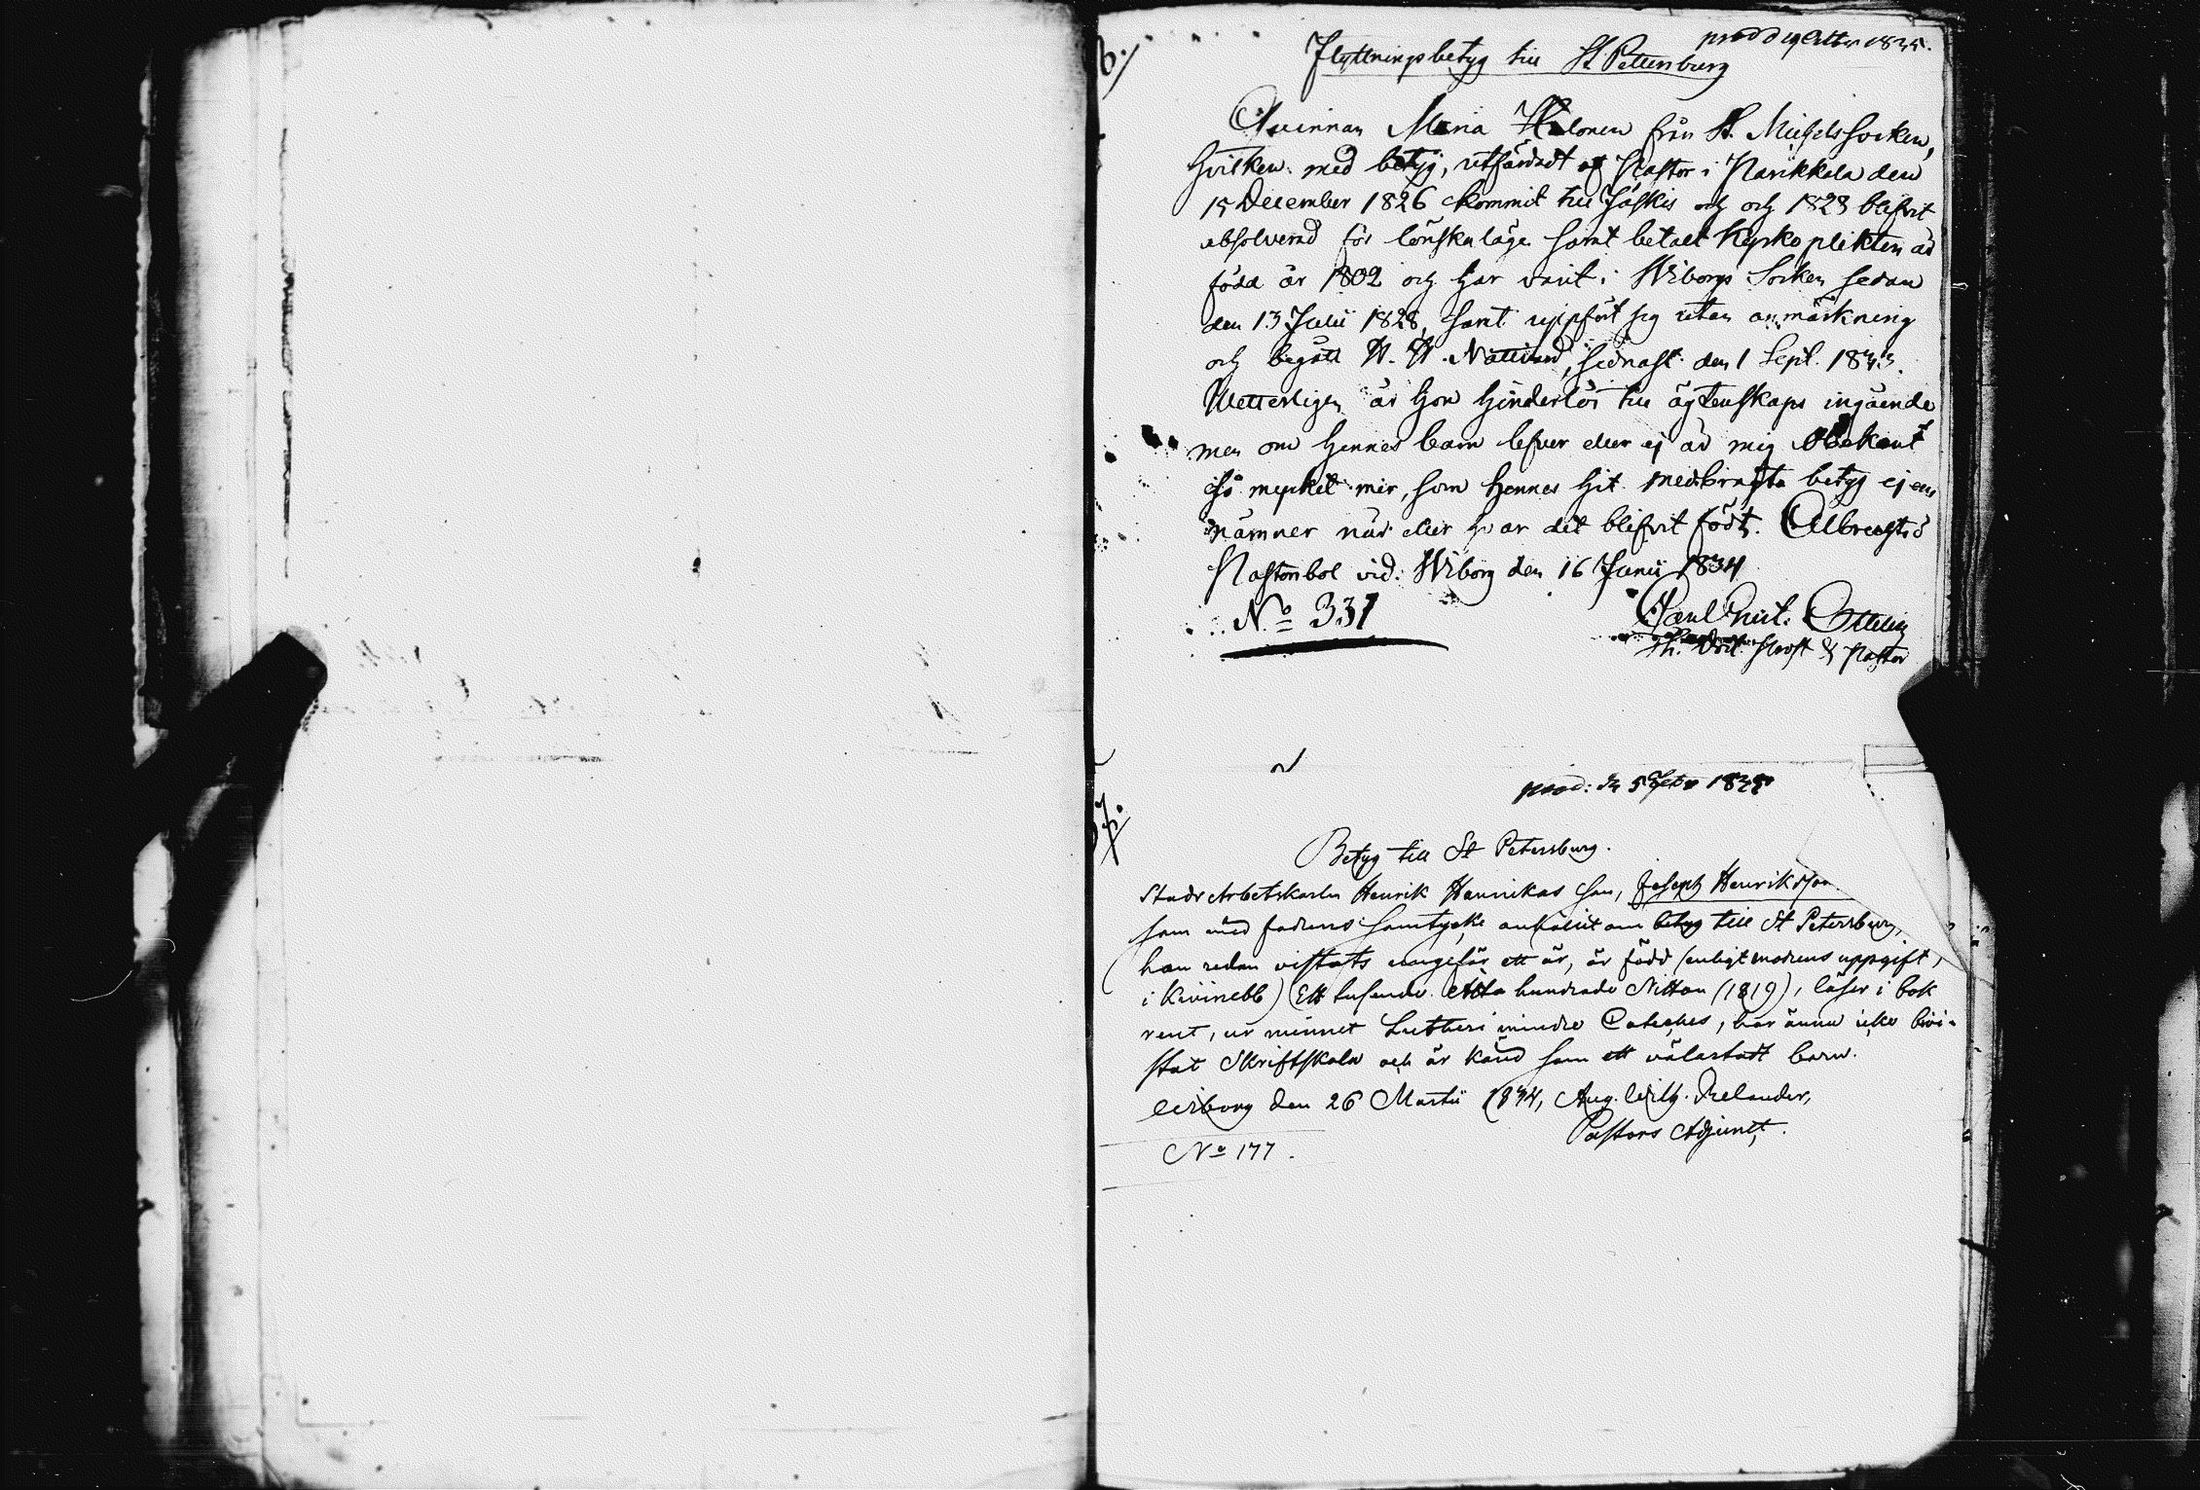 6.
prod d 19 Octbr 1835.
Flyttningsbetyg till St Pettersburg
Qvinnan Maria Halonen från St. Michels socken,
hvilken med betyg, utfärdadt af Pastor i Parikkala den
15 December 1826 kommit till Jäskis och och 1828 blifvit
absolverad för lönskaläge samt betalt kyrkoplikten är
född år 1802 och har varit i Wiborgs Socken sedan
den 13 Julii 1828, samt uppfört sig utan anmärkning
och begått H. H. Nattvard, sednast den 1 Sept. 1833.
Wetterligen är hon hinderlös till ägtenskaps ingående
men om hennes barn lefver eller ej är mig obekant
så mycket mer, som hennes hit medbragta betyg ej ens
nämner när eller hvar det blifvit födt.
Pastorsbol vid Wiborg den 16 Junii 1834
No 331
Prost & Pastor
7.
prod: d. 5 1835
Betyg till St Petersburg.
Stads Arbetskarlen Henrik Henrikas son, Joseph Henriksson
som med fadrens samtycke anhållit om betyg till St Petersburg,
han redan vistats ungefär ett år, är född (enligt modrens uppgift,
i Kivinebb) Ett tusende Åtta hundrade Nitton (1819), läser i bok
rent, ur minnet Lutheri mindre Cateches, har ännu icke bevi-
stat Skriftskola och är känd som ett välartadt barn.
Wiborg den 26 Martii 1834, Aug. Wilh. Relander,
Pastors Adjunct.
No 177.